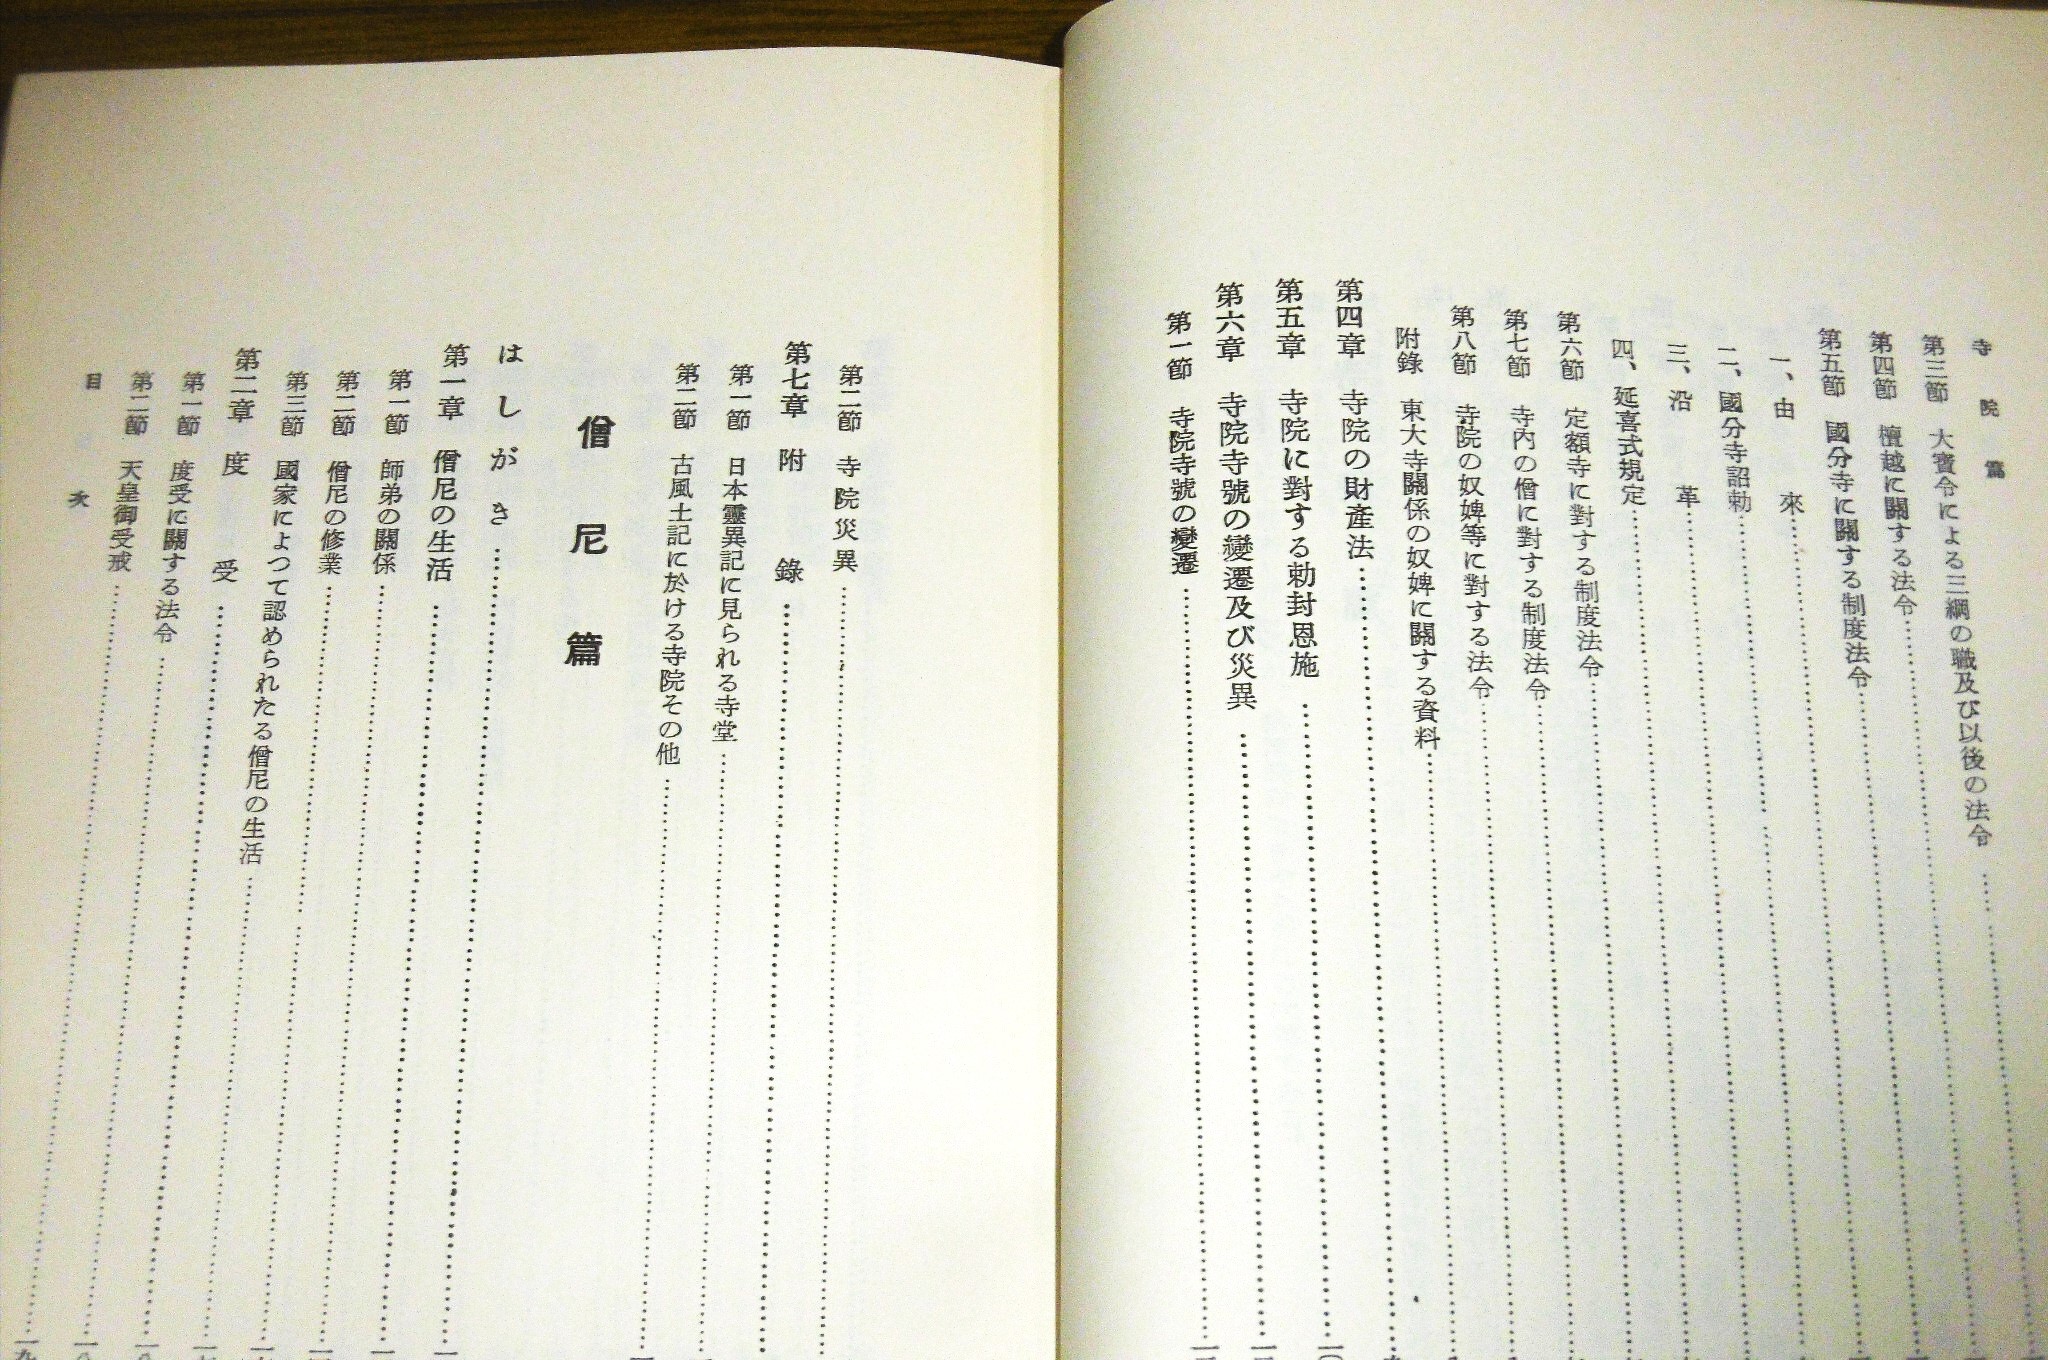 寺院篇
第三節　大寶令による三綱の職及び以後の法令……
第四節　檀越に關する法令……
第五節　國分寺に關する制度法令……
一、由　來……
二、國分寺詔勅……
三、沿　革……
四、延喜式規定……
第六節　定額寺に對する制度法令……
第七節　寺內の僧に對する制度法令……
第八節　寺院の奴婢等に對する法令……
附錄　東大寺關係の奴婢に關する資料……
第四章　寺院の財產法……
第五章　寺院に對する勅封恩施……
第六章　寺院寺號の變遷及び災異……
第一節　寺院寺號の變遷……
第二節　寺院災異……
第七章　附　錄……
第一節　日本靈異記に見られる寺堂……
第二節　古風土記に於ける寺院その他……
僧尼篇
はしがき……
第一章　僧尼の生活……
第一節　師弟の關係……
第二節　僧尼の修業……
第三節　國家によつて認められたる僧尼の生活……
第二章　度　受……
第一節　度受に關する法令……
第二節　天皇御受戒……
目　次